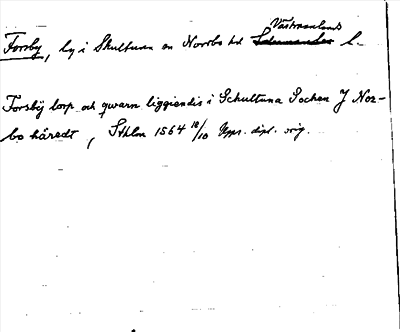 Västmanlands
Forsby, by i Skultuna sn Norrbo hd l.
Forsbÿ torp och qwarn liggiendis i Schultuna Sochen J Nor-
bo häredt, Sthlm 1564 18/10 Upps. dipl. orig.